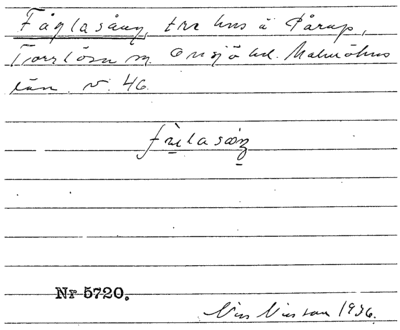 Fåglasång, tre hus å Pårup,
Torrlösa sn. Onsjö hd. Malmöhus
län. v. 46.
Nr 5720.
Nils Nilsson 1936.